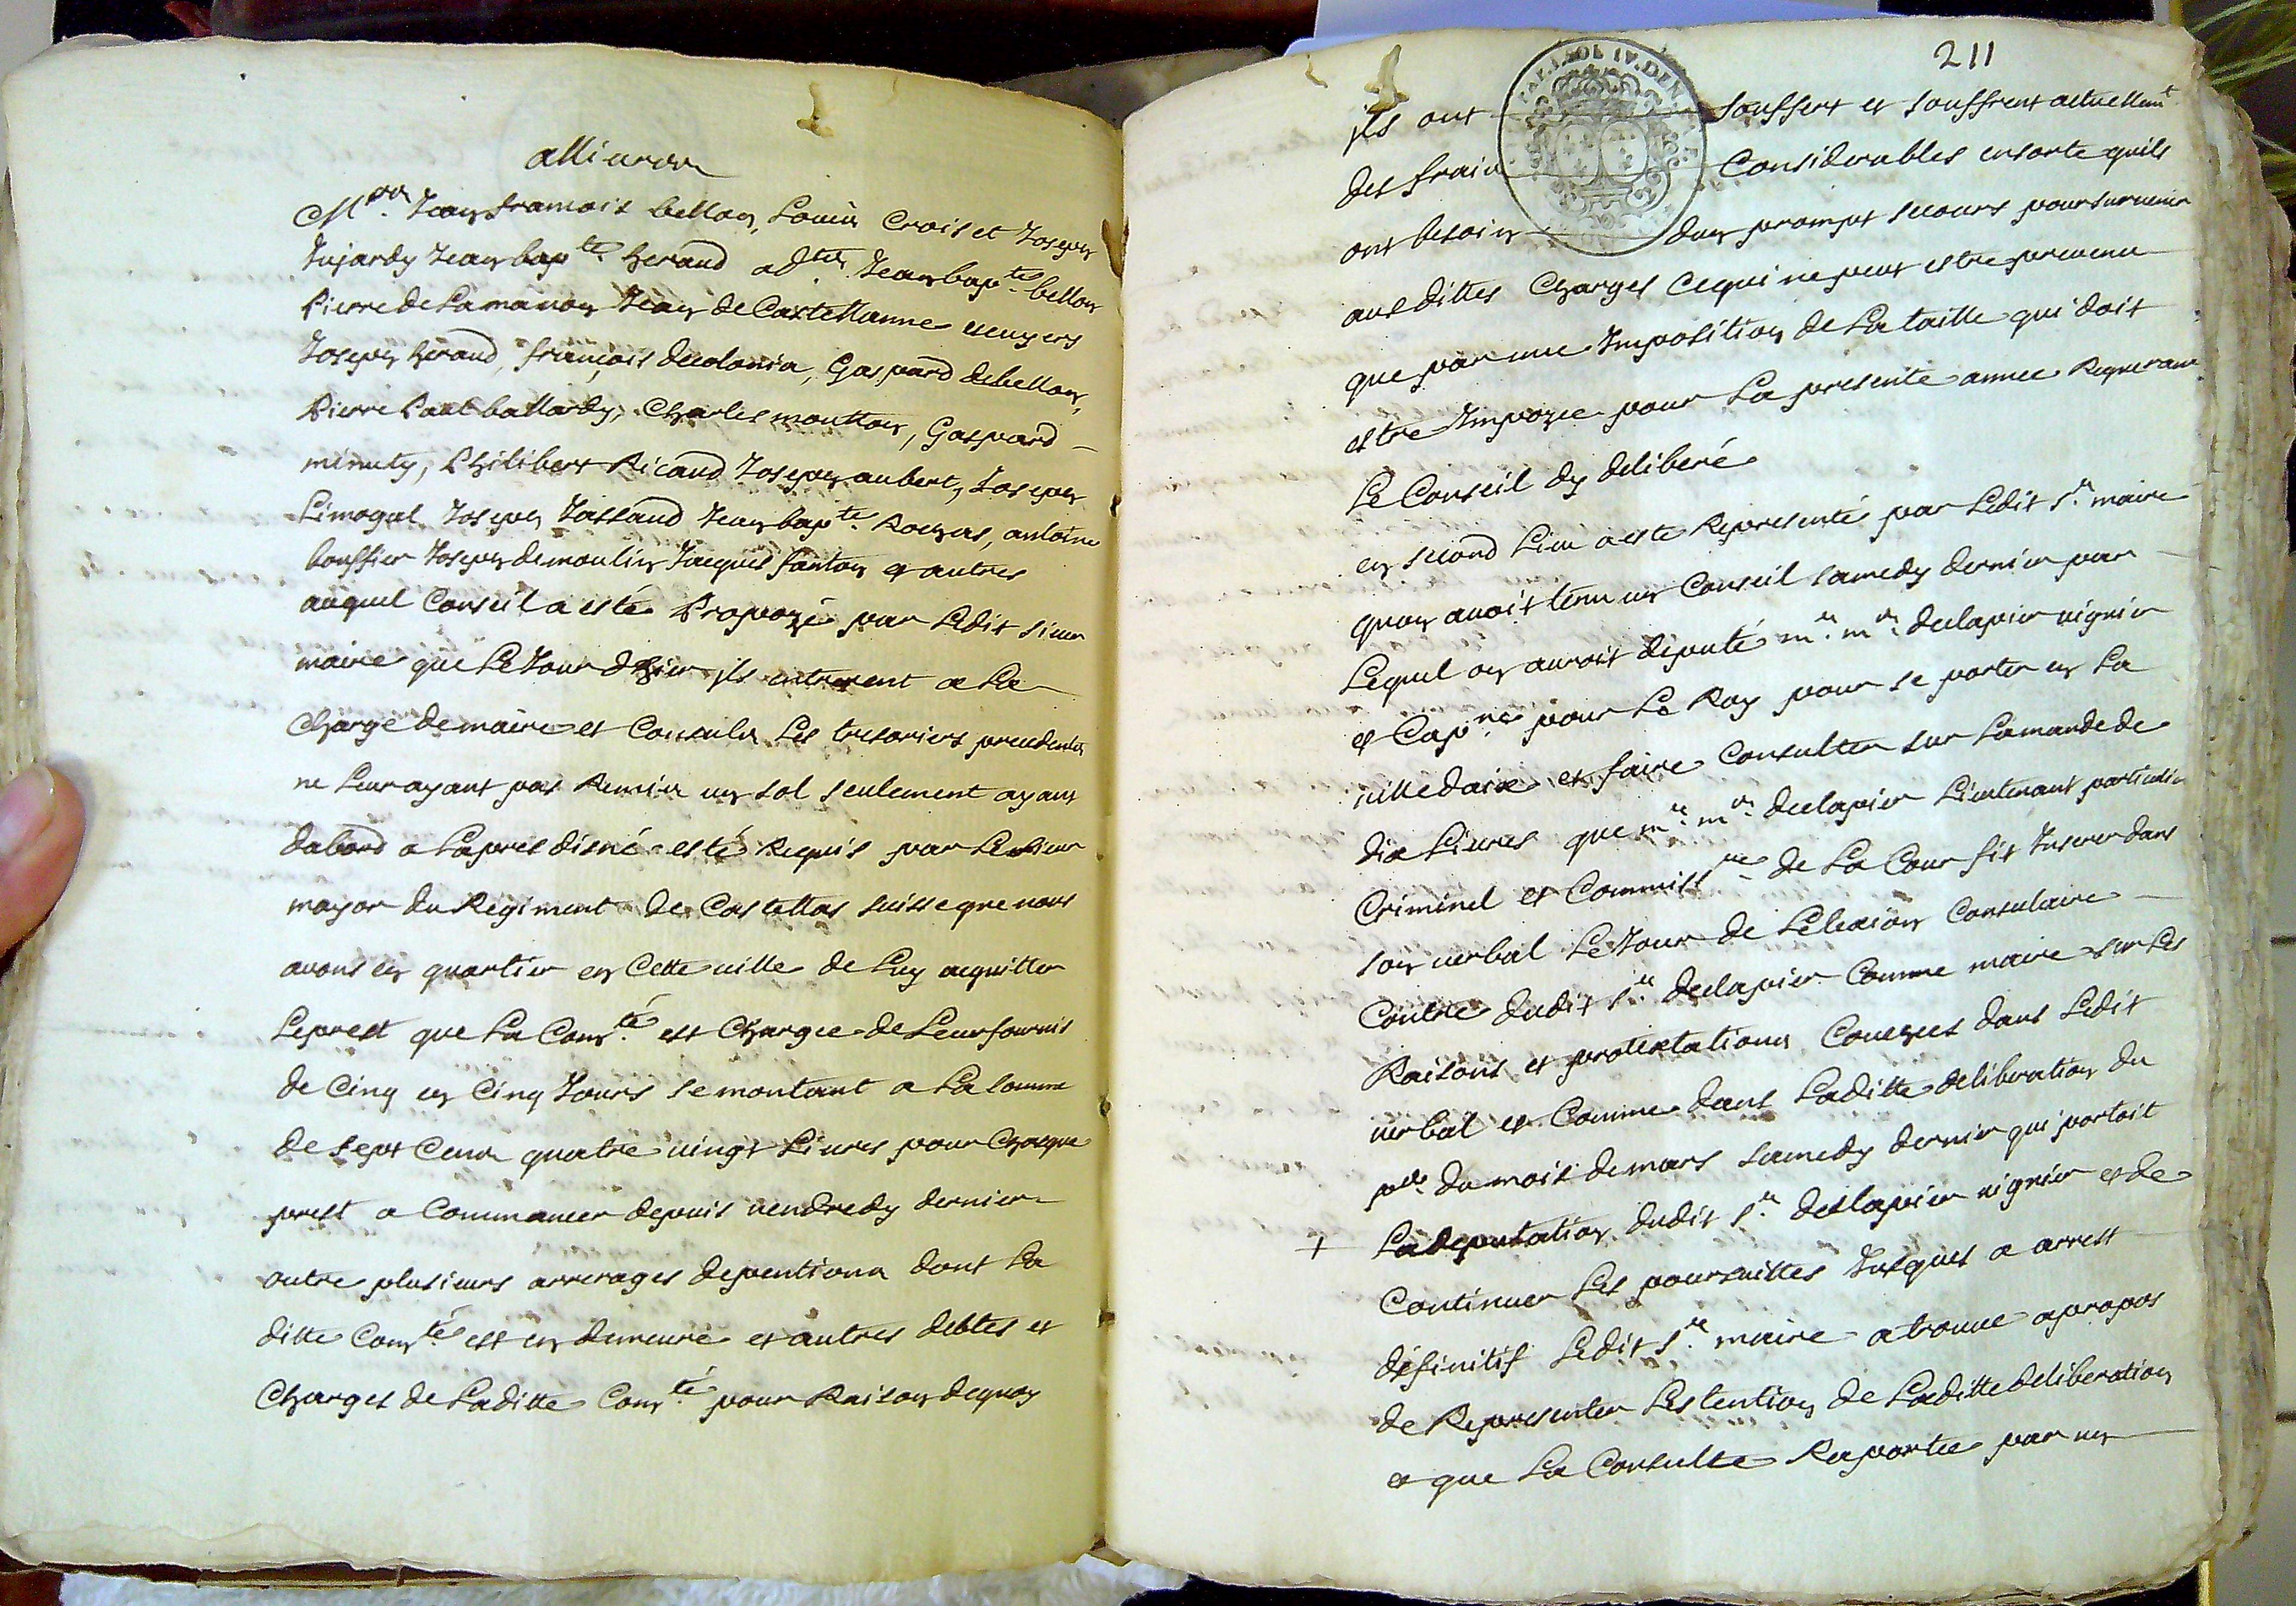 alliuron
M.rs Jean francois bellon, Louis Crois et Joseph
Jujardy Jean bap.te heraud ad.ts Jean bap.te bellon
Pierre de Lamanon Jean de Castellanne ecuyers
Joseph heraud, françois decolonia, Gaspard debellon,
Pierre Paul ballardy, Charles moutton, Gaspard
minuty, Philibert Ricaud Joseph aubert, Joseph
Limogal Joseph Jassaud Jean bap.te Rochas, antoine
bouffier Joseph demoulin Jacques fanton et autres
auquel Conseil a esté Propozé par Ledit sieur
maire que Le Jour dhier ils entrerent a La
Charge de maire et Consuls Les tresoriers precedents
ne Leur ayant pas Remis un sol seulement ayant
dabord a Lapres disné esté Requis par Le sieur
mayor du Regiment de Castellas suisse que nous
avons en quartier en Cette uille de Luy acquitter
Leprest que La Com.té est Chargee de Leur fournir
de Cinq en Cinq Jours se montant a La somme
de sept Cens quatre uingt Liures pour Chaque
prest a Commancer depuis uendredy dernier
outre plusieurs arrerages depentions dont La
ditte Com.té est en demeure et autres debtes et
Charges de Laditte Com.té pour Raison dequoy
211
ils ont souffert et souffrent actuellem.t
des frais Considerables ensorte quils
ont besoin dun prompt secours pour suruenir
ausdittes Charges Cequi ne peut estre preuenu
que par une Imposition de La taille qui doit
estre Impozee pour La presente annee Requerant
Le Conseil dy deliberé
en second Lieu a esté Representé par Ledit s.r maire
quon auoit tenu un Conseil samedy dernier par
Lequel on auroit deputé m.re m.re declapier uiguier
et Cap.ne pour Le Roy pour se porter en La
uille daix et faire Consulter sur Lamande de
dix Liures que m.re m.re declapier Lieutenant particulier
Criminel et Commiss.re de La Cour fit Inserer dans
son uerbal Le Jour de Lelexion Consulaire
Contre dudit s.r declapier Comme maire sur Les
Raisons et protextations Couchees dans Ledit
uerbal et Comme dans Laditte deliberation du
p.er du mois de mars samedy dernier qui portoit
+ Ladeputation dudit s.r declapier uiguier et de
Continuer Les poursuittes Jusques a arrest
definitif Ledit s.r maire a trouue apropos
de Representer Lestention de Laditte deliberation
et que La Consulte Raportee par un